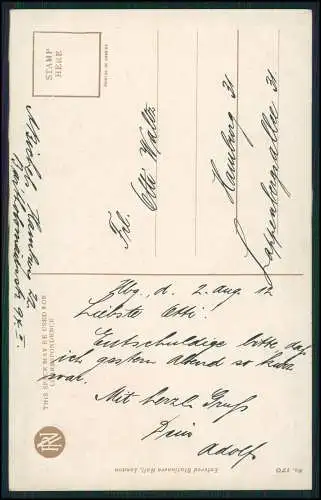 STAMP
HERE
PRINTED IN SAXONY
Frl.
Etti Waltz
Hamburg 31
Lappenbergsallee 31
Hamburg 22
THIS SPACE MAY BE USED FOR
CORRESPONDENCE
Hbg., d. 2. Aug. 12
Liebste Etti.
Entschuldige bitte daß
ich gestern Abend so kurz
war.
Mit herzl. Gruß
Dein
Adolf
Entered Stationers Hall, London
No. 170